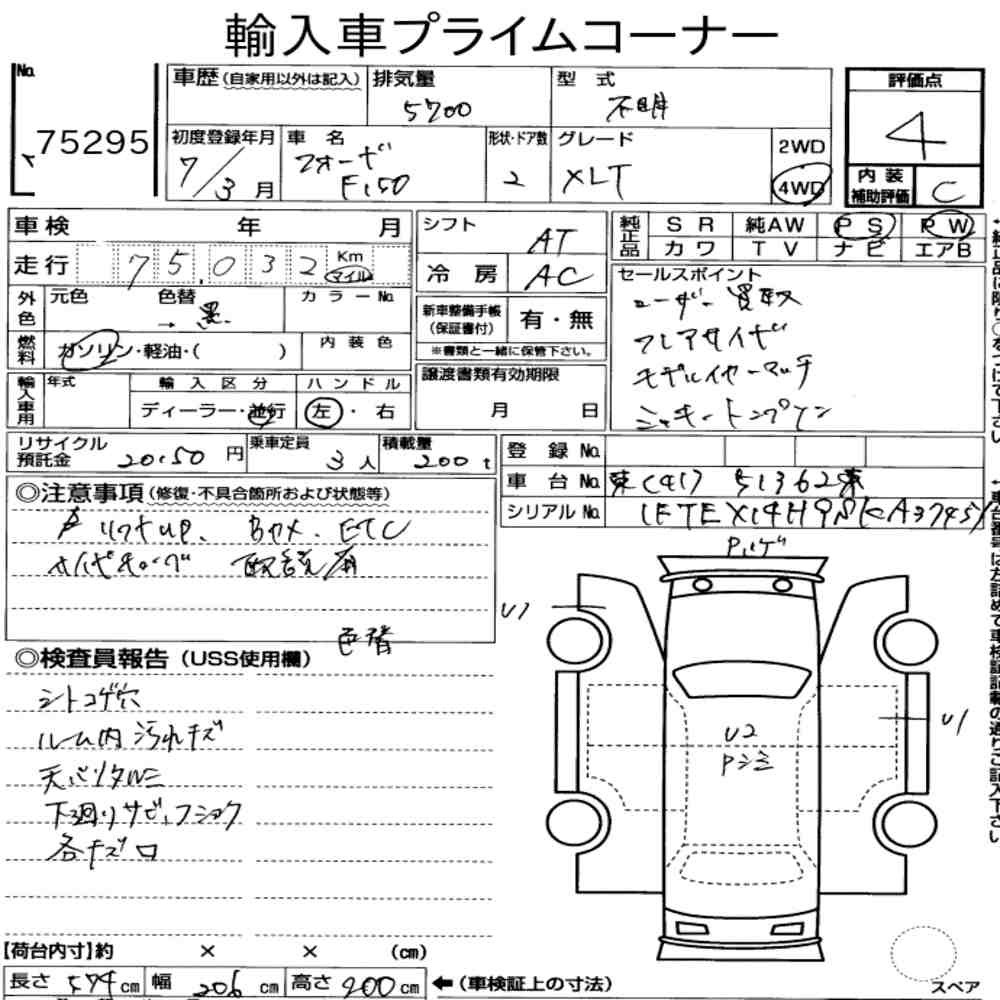 輸入車プライムコーナー
No.
75295
車歴 (自家用以外は記入)
排気量
5700
型式
不明
初度登録年月
7/3月
車名
フォード
F150
形状・ドア数
2
グレード
XLT
2WD
4WD
評価点
4
内装
補助評価
C
車検 年 月
走行 75,032 Km
マイル
外色
元色 色替 カラーNo.
→ 黒
燃料
ガソリン・軽油・( )
内装色
輸入車用
年式
輸入区分
ハンドル
ディーラー・並行
左・右
シフト
AT
冷房
AC
新車整備手帳
(保証書付)
有・無
※書類と一緒に保管下さい。
譲渡書類有効期限
月 日
純正品
SR 純AW PS PW
カワ TV ナビ エアB
セールスポイント
ユーザー買取
フレアサイド
モデルイヤーマッチ
ミッキートンプソン
リサイクル
預託金
20150円
乗車定員
3人
積載量
200t
登録No.
車台No.
東[41]51362東
シリアルNo.
1FTEX14H9SKA37457
◎注意事項 (修復・不具合箇所および状態等)
リフトup. Bカメ. ETC
配説有
色替
◎検査員報告 (USS使用欄)
シートコゲ穴
ルーム内汚れキズ
天バリタルミ
下廻りサビ、フショク
各キズ凹
U1
U1
U2
Pシミ
【荷台内寸】約 × × (cm)
長さ 574cm
幅 206cm
高さ 200cm
←(車検証上の寸法)
スペア